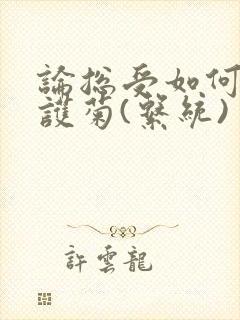 論總受如何
護菊(繫統)
許雲龍